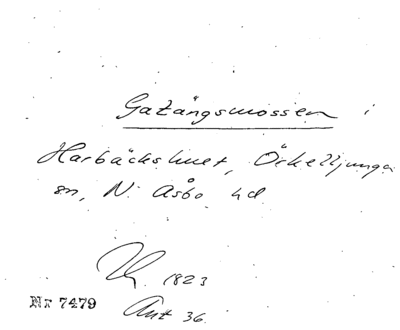 Gatängsmossen i
Harbäckshult, Örkelljunga
sn, N. Åsbo hd
1823
Nr 7479
Ant 36.